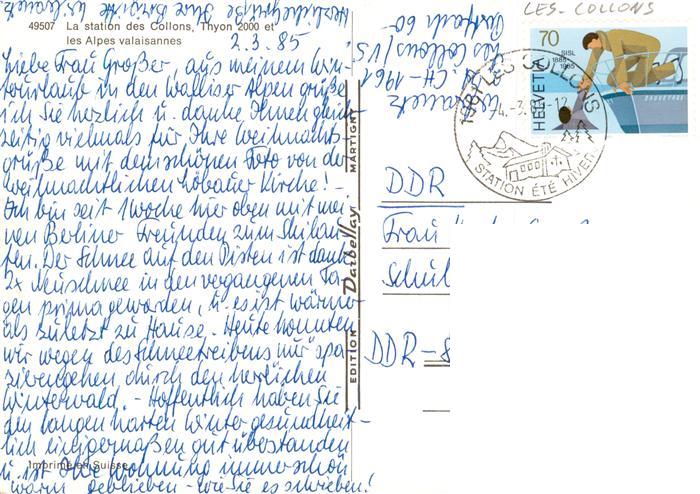 49507 La station des Collons, Thyon 2000 et
les Alpes valaisannes
2.3.85
Liebe Frau Großer, aus meinem Win-
terurlaub in den Walliser Alpen grüße
ich Sie herzlich u. danke Ihnen gleich-
zeitig vielmals für Ihre Weihnachts-
grüße mit dem schönen Foto von der
weihnachtlichen Löbauer Kirche! -
Ich bin seit 1 Woche hier oben mit mei-
nen Berliner Freunden zum Skilau-
fen. Der Schnee auf den Pisten ist dank
2x Neuschnee in den vergangenen Ta-
gen prima geworden, u. es ist wärmer
als zuletzt zu Hause. Heute konnten
wir wegen des Schneetreibens nur spa-
zierengehen durch den herrlichen
Winterwald. - Hoffentlich haben Sie
den langen harten Winter gesundheit-
lich einigermaßen gut überstanden
u. ist Ihre Wohnung immer schön
warm geblieben - wie Sie es schrieben!
Herzliche Grüße Ihre Brigitte
Imprimé en Suisse
EDITION Darbellay MARTIGNY
Postfach 60
Les Collons/VS
CH-1961
LES-COLLONS
70
SISL
1885
1985
HELVETIA
1961 LES COLLONS
4.-3.
-12
STATION ÉTÉ HIVER
DDR
Frau
Schul
DDR-8